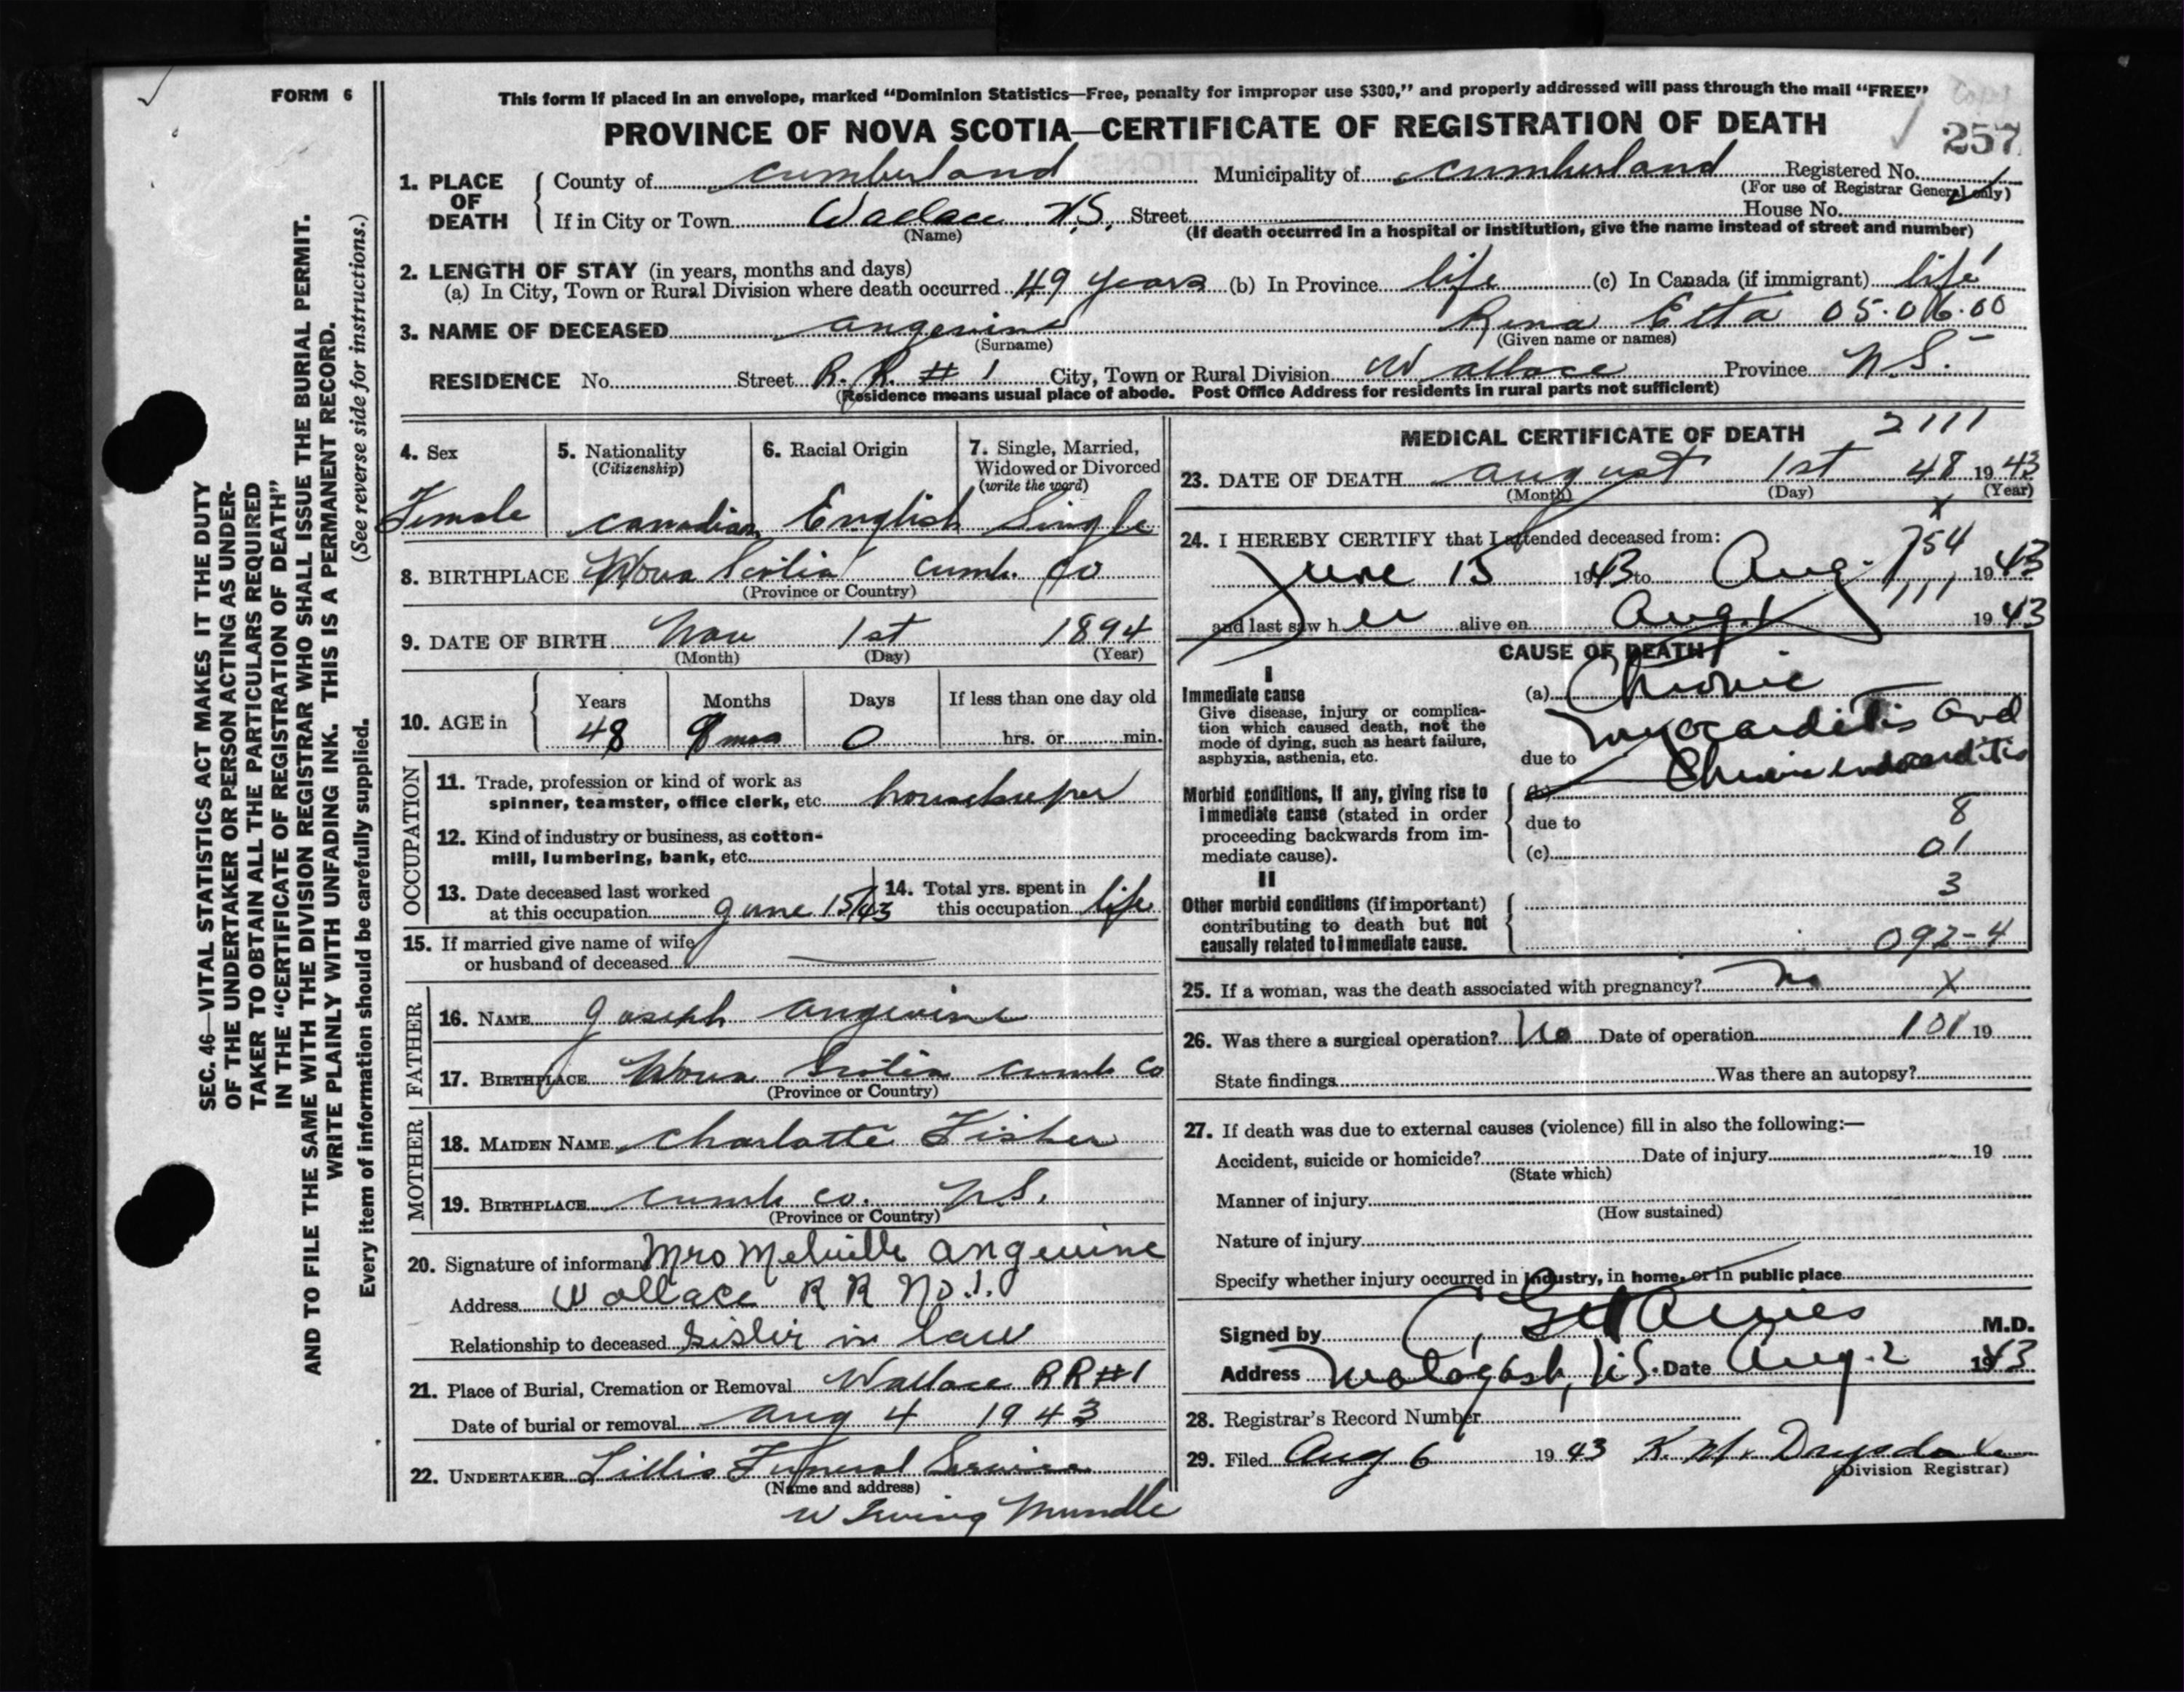 FORM 6
This form if placed in an envelope, marked “Dominion Statistics—Free, penalty for improper use $300,” and properly addressed will pass through the mail “FREE”
PROVINCE OF NOVA SCOTIA—CERTIFICATE OF REGISTRATION OF DEATH
257
1. PLACE OF DEATH
County of Cumberland Municipality of Cumberland Registered No.
(For use of Registrar General only)
If in City or Town Wallace N.S. Street House No.
(Name) (If death occurred in a hospital or institution, give the name instead of street and number)
2. LENGTH OF STAY (in years, months and days)
(a) In City, Town or Rural Division where death occurred 49 years (b) In Province life (c) In Canada (if immigrant) life
3. NAME OF DECEASED Angevine Rena Etta 05.06.00
(Surname) (Given name or names)
RESIDENCE No. Street R. R. # 1 City, Town or Rural Division Wallace Province N.S.
(Residence means usual place of abode. Post Office Address for residents in rural parts not sufficient)
4. Sex
Female
5. Nationality
(Citizenship)
Canadian
6. Racial Origin
English
7. Single, Married,
Widowed or Divorced
(write the word)
Single
8. BIRTHPLACE Nova Scotia Cumb. Co
(Province or Country)
9. DATE OF BIRTH Nov 1st 1894
(Month) (Day) (Year)
10. AGE in
Years Months Days If less than one day old
48 9 mos 0 hrs. or min.
OCCUPATION
11. Trade, profession or kind of work as
spinner, teamster, office clerk, etc. housekeeper
12. Kind of industry or business, as cotton-
mill, lumbering, bank, etc.
13. Date deceased last worked
at this occupation June 15/43
14. Total yrs. spent in
this occupation life
15. If married give name of wife
or husband of deceased
FATHER
16. NAME Joseph Angevine
17. BIRTHPLACE Nova Scotia Cumb Co
(Province or Country)
MOTHER
18. MAIDEN NAME Charlotte Fisher
19. BIRTHPLACE Cumb Co. N.S.
(Province or Country)
20. Signature of informant Mrs Melville Angevine
Address Wallace R R No. 1.
Relationship to deceased Sister in law
21. Place of Burial, Cremation or Removal Wallace RR#1
Date of burial or removal Aug 4 1943
22. UNDERTAKER Lillis Funeral Service
(Name and address)
W Irving Mundle
MEDICAL CERTIFICATE OF DEATH 2111
23. DATE OF DEATH August 1st 48 1943
(Month) (Day) (Year)
x
24. I HEREBY CERTIFY that I attended deceased from:
754
June 15 1943 to Aug. 1943
111
and last saw her alive on Aug. 1 1943
CAUSE OF DEATH
I
Immediate cause
Give disease, injury or complica-
tion which caused death, not the
mode of dying, such as heart failure,
asphyxia, asthenia, etc.
(a) Chronic
myocarditis and
due to Chronic endocarditis
Morbid conditions, if any, giving rise to
immediate cause (stated in order
proceeding backwards from im-
mediate cause).
(b)
8
due to
(c) 01
II
3
Other morbid conditions (if important)
contributing to death but not
causally related to immediate cause.
092-4
25. If a woman, was the death associated with pregnancy? No X
26. Was there a surgical operation? No Date of operation 101 19
State findings Was there an autopsy?
27. If death was due to external causes (violence) fill in also the following:—
Accident, suicide or homicide? Date of injury 19
(State which)
Manner of injury
(How sustained)
Nature of injury
Specify whether injury occurred in industry, in home, or in public place
Signed by M.D.
Address Malagash, N.S. Date Aug. 2 1943
28. Registrar's Record Number
29. Filed Aug 6 1943 K. M. Drysdale
(Division Registrar)
SEC. 46—VITAL STATISTICS ACT MAKES IT THE DUTY
OF THE UNDERTAKER OR PERSON ACTING AS UNDER-
TAKER TO OBTAIN ALL THE PARTICULARS REQUIRED
IN THE “CERTIFICATE OF REGISTRATION OF DEATH”
AND TO FILE THE SAME WITH THE DIVISION REGISTRAR WHO SHALL ISSUE THE BURIAL PERMIT.
WRITE PLAINLY WITH UNFADING INK. THIS IS A PERMANENT RECORD.
(See reverse side for instructions.)
Every item of information should be carefully supplied.